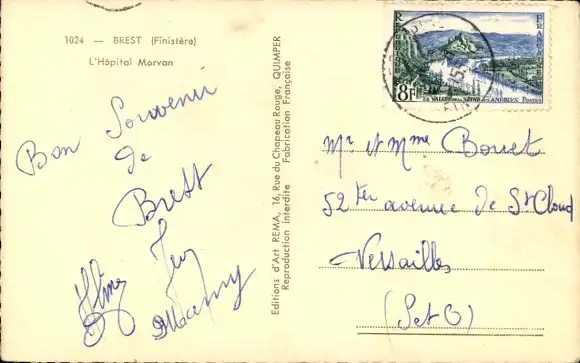 1024 — BREST (Finistère)
L'Hôpital Morvan
Bon Souvenir
de
Brest
Editions d'Art REMA, 16, Rue du Chapeau Rouge, QUIMPER
Reproduction interdite Fabrication Française
REPUBLIQUE FRANÇAISE
8F
LA VALLÉE DE LA SEINE AUX ANDELYS Postes
Mr et Mme Bouet
52 Ter avenue de St Cloud
Versailles
(S et O)